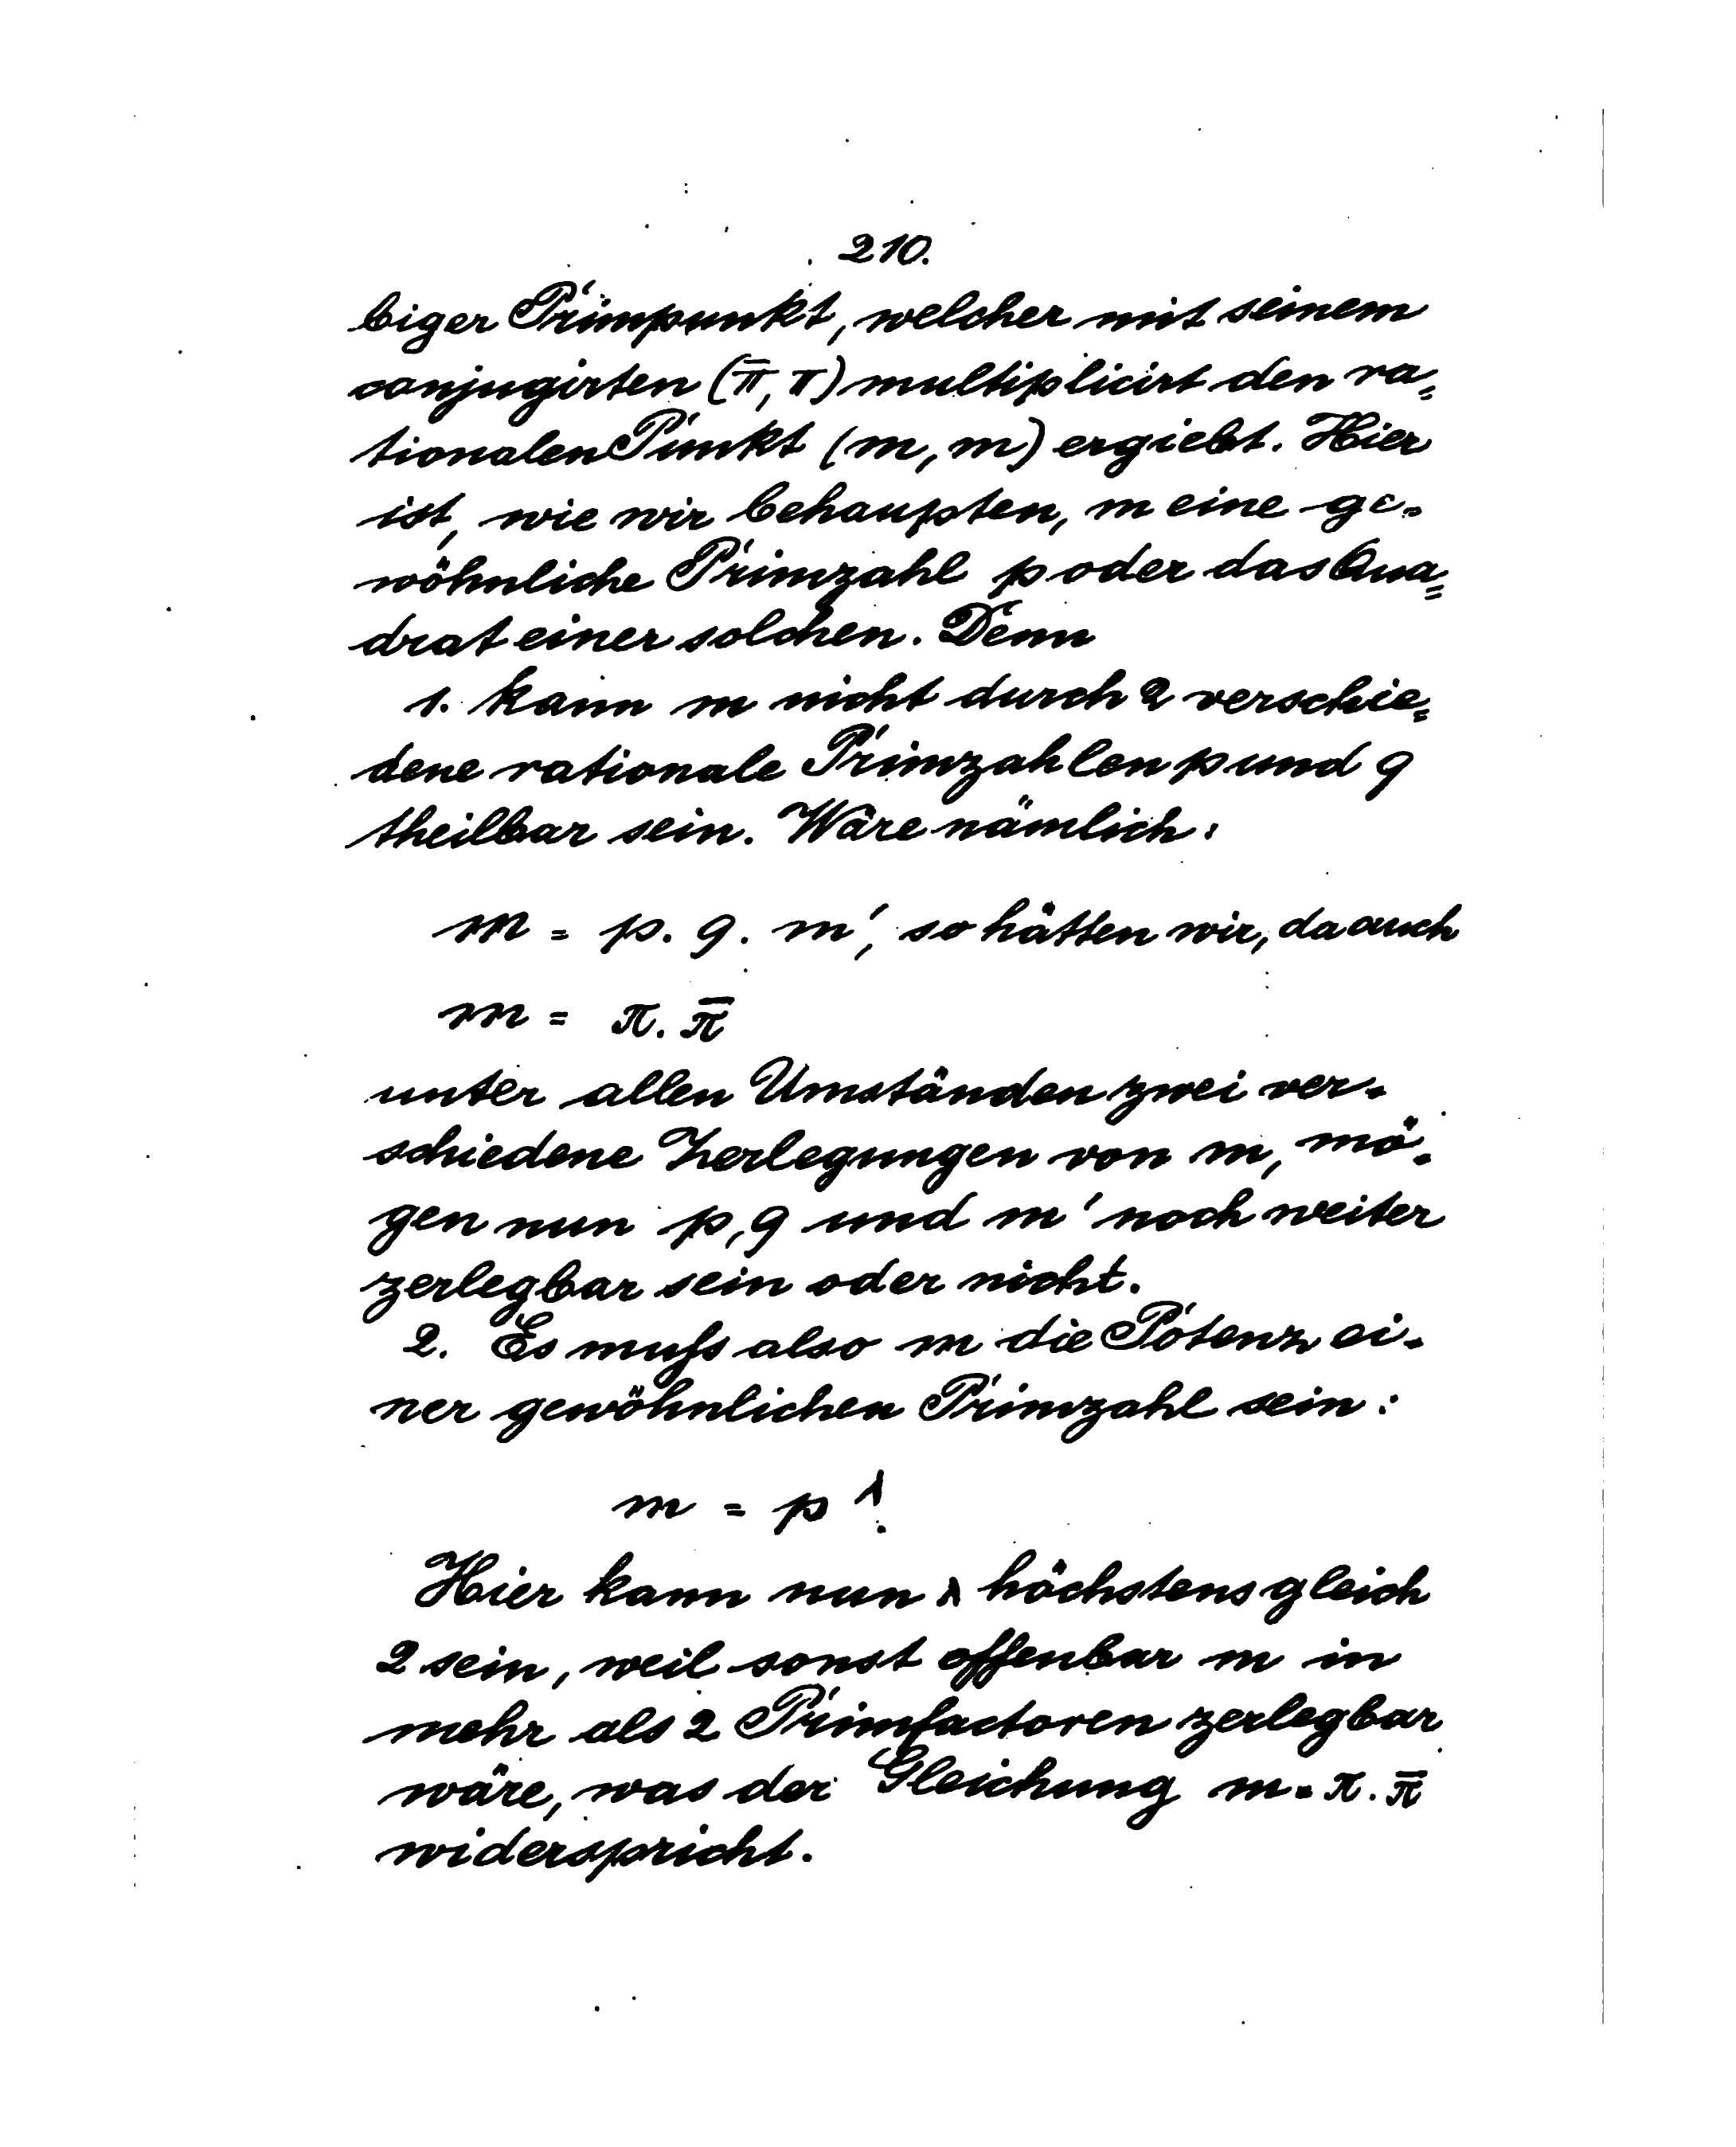 210.
biger Primpunkt, welcher mit seinem
conjugirten (π̄, π) multiplicirt den ra=
tionalen Punkt (m, m) ergiebt. Hier
ist, wie wir behaupten, m eine ge-
wöhnliche Primzahl p oder das Qua=
drat einer solchen. Denn
1. kann m nicht durch 2 verschie=
dene rationale Primzahlen p und q
theilbar sein. Wäre nämlich:
m = p. q. m', so hätten wir, da auch
m = π. π̄
unter allen Umständen zwei ver-
schiedene Zerlegungen von m, mö-
gen nun p, q und m' noch weiter
zerlegbar sein oder nicht.
2. Es muß also m die Potenz ei-
ner gewöhnlichen Primzahl sein:
m = p^λ.
Hier kann nun λ höchstens gleich
2 sein, weil sonst offenbar m in
mehr als 2 Primfactoren zerlegbar
wäre, was der Gleichung m = π. π̄
widerspricht.